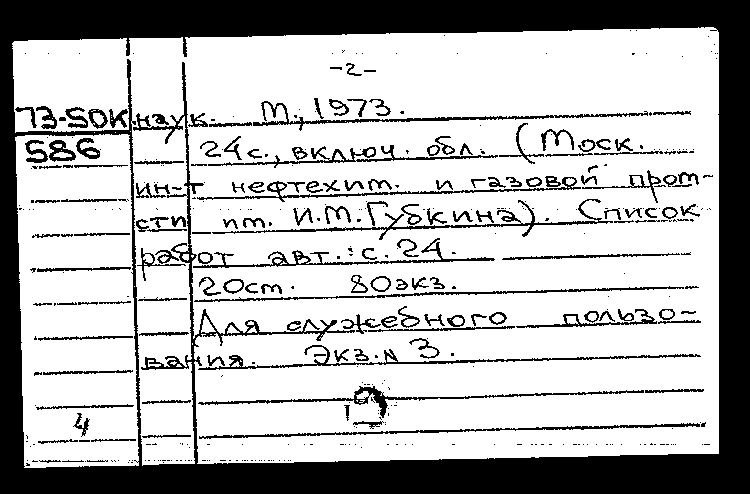 -2-
73-50К наук. М., 1973.
586 24с., включ. обл. (Моск.
ин-т нефтехим. и газовой пром-
сти им. И.М.Губкина). Список
работ авт.: с. 24.
20см. 80экз.
Для служебного пользо-
вания. Экз.N 3.
4